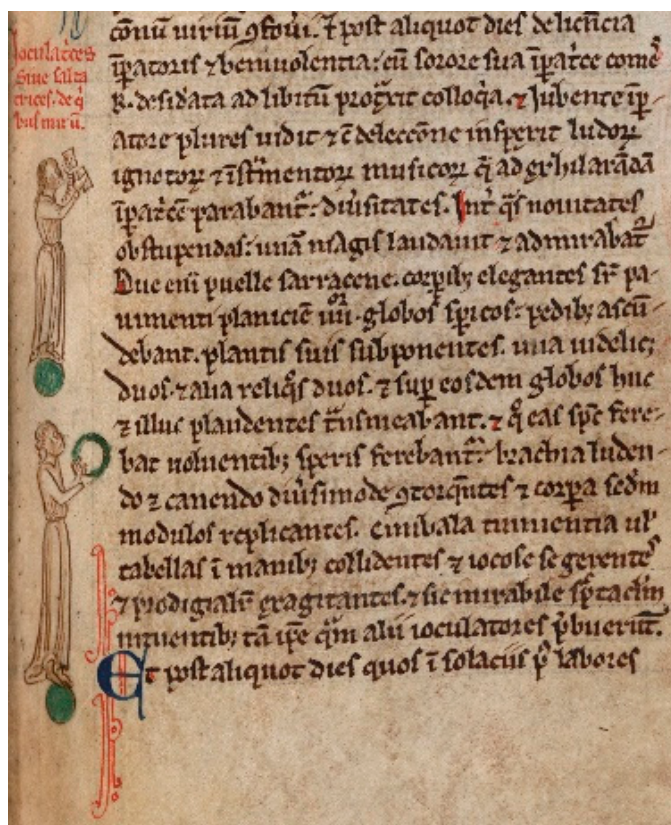 Ioculatᵉces
siue salta
trices. de qͥ
bus mir̄ ū.
cōnū uiriū ꝯfoui. ⁊ post aliquot dies de licencia
īpatoris ⁊ beniuolentia: cū sorore sua īpatͥce comeͥ
R. desid̓ata ad libitū ꝓtͣxit colloqͥa. ⁊ Iubente īp̄
atore plures uidit ⁊ cͫ delecc̄one insꝑit ludoꝝ
ignotoꝝ ⁊ īstͬmentoꝝ musicoꝝ q̄ ad exhilarādā
īpatͥcē parabant᷑: diu̓sitates. Int̓ qͣs nouitates
obstupendas: unā magis laudauit ⁊ admirabat᷑
Due eni puelle sarracene. corꝑibꝫ elegantes sr̄ pa-
uimenti planiciē iiijͦʳ globos sꝑicos: pedibꝫ ascē-
debant. plantis suis subponentes. una uidelicꝫ
duos. ⁊ alia reliqͦs duos. ⁊ suꝑ eosdem globos huc
⁊ illuc plaudentes tͣnsmeabant. ⁊ qͦ eas spc̄ fere-
bat uoluentibꝫ speris ferebant᷑: brachia luden-
do ⁊ canendo diu̓simode ꝯtorqͣntes ⁊ corꝑa sed̄m
modulos replicantes. Cimbala tinnientia ul̓
tabellas ī manibꝫ collidentes ⁊ iocose se gerentes
⁊ prodigialiͬ exagitantes. ⁊ sic mirabile sp̄taclm̄
intuentibꝫ tā ip̄e qͣm alii ioculatores p̄buerūt.
Et post aliquot dies quos ī solaciis p̓ labores